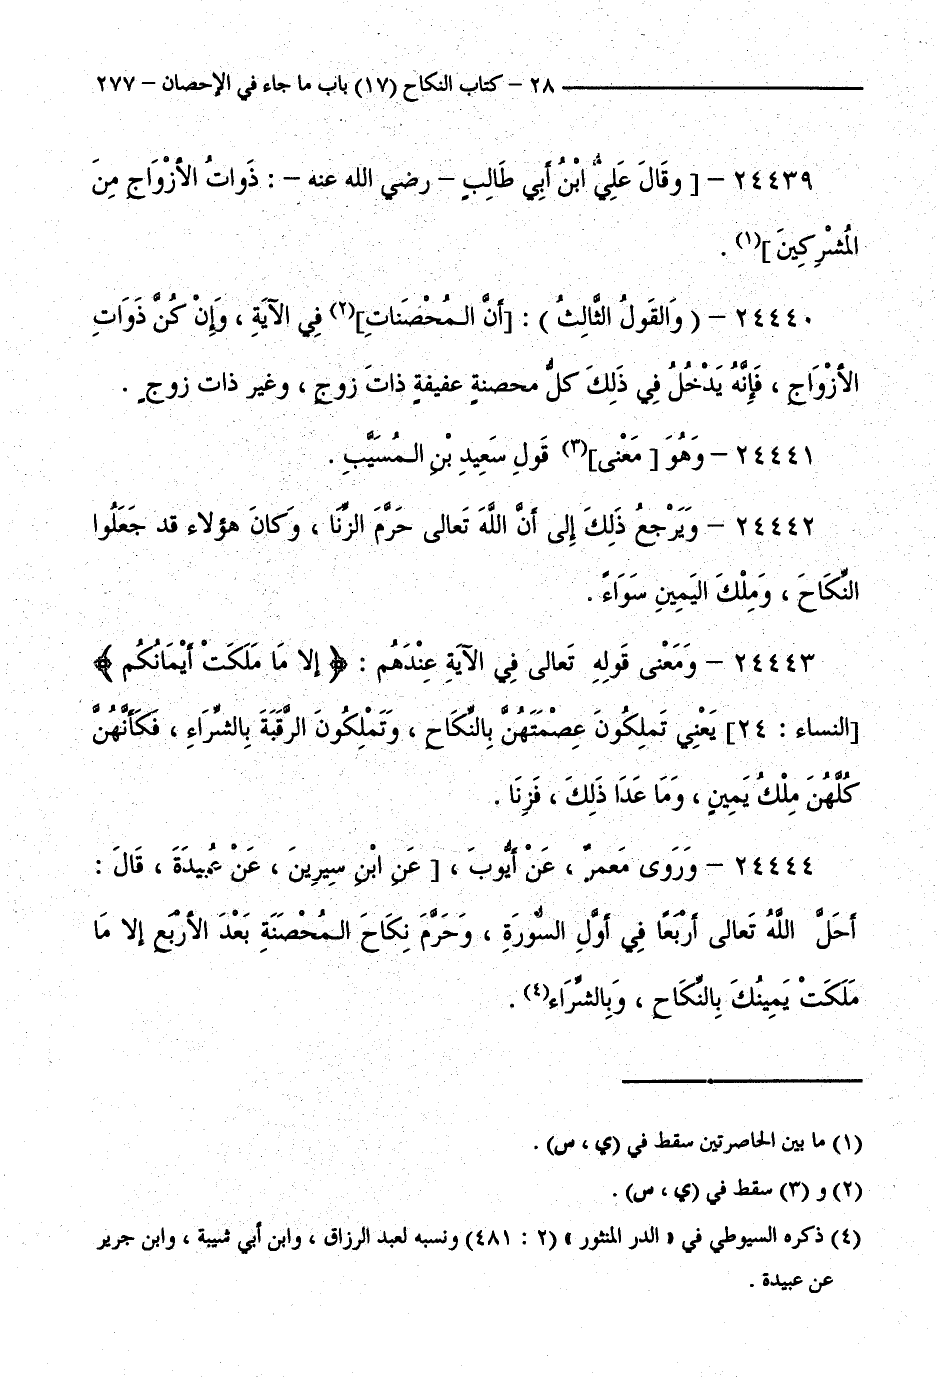 ٢٨ – كتاب النكاح (١٧) باب ما جاء في الإحصان – ٢٧٧
٢٤٤٣٩ – [ وقَالَ عَلِيُّ ابْنُ أَبِي طَالِبٍ – رضي الله عنه – : ذَواتُ الأزْوَاجِ مِنَ
المُشْرِكِينَ ](١) .
٢٤٤٤٠ – ( وَالقَولُ الثَّالِثُ ) : [أنَّ الـمُحْصَنَاتِ](٢) فِي الآيَةِ ، وَإِنْ كُنَّ ذَوَاتِ
الأزْوَاجِ ، فَإِنَّهُ يَدْخُلُ فِي ذَلِكَ كلُّ محصنةٍ عفيفةٍ ذاتَ زوجٍ ، وغير ذات زوجٍ .
٢٤٤٤١ – وَهُوَ [ مَعْنى](٣) قَولِ سَعِيدِ بْنِ الـمُسَيَّبِ .
٢٤٤٤٢ – وَيَرْجعُ ذَلِكَ إِلى أنَّ اللَّهَ تَعالى حَرَّمَ الزِّنَا ، وَكانَ هؤلاء قد جَعَلُوا
النِّكَاحَ ، وَمِلْكَ اليَمِينِ سَوَاءً .
٢٤٤٤٣ – وَمَعْنى قَولِهِ تَعالى فِي الآيَةِ عِنْدَهُم : ﴿ إلا مَا مَلَكَتْ أيْمَانُكُم ﴾
[النساء : ٢٤] يَعْنِي تَملِكُونَ عِصْمَتَهُنَّ بِالنِّكَاحِ ، وَتَمْلِكُونَ الرَّقَبَةَ بِالشِّرَاءِ ، فَكَأنَّهُنَّ
كُلَّهُنَ مِلْكُ يَمِينٍ ، وَمَا عَدَا ذَلِكَ ، فَزِنَا .
٢٤٤٤٤ – وَرَوَى مَعمرٌ ، عَنْ أَيُّوبَ ، [ عَنِ ابْنِ سِيرِينَ ، عَنْ عُبِيدَةَ ، قَالَ :
أحَلَّ اللَّهُ تَعالى أرْبَعًا فِي أوَّلِ السُّورَةِ ، وَحَرَّمَ نِكَاحَ الـمُحْصَنَةِ بَعْدَ الأرْبَعِ إلا مَا
مَلَكَتْ يَمِينُكَ بِالنِّكَاحِ ، وَبِالشِّرَاء(٤) .
(١) ما بين الحاصرتين سقط في (ي ، س) .
(٢) و (٣) سقط في (ي ، س) .
(٤) ذكره السيوطي في « الدر المنثور » (٢ : ٤٨١) ونسبه لعبد الرزاق ، وابن أبي شيبة ، وابن جرير
عن عبيدة .